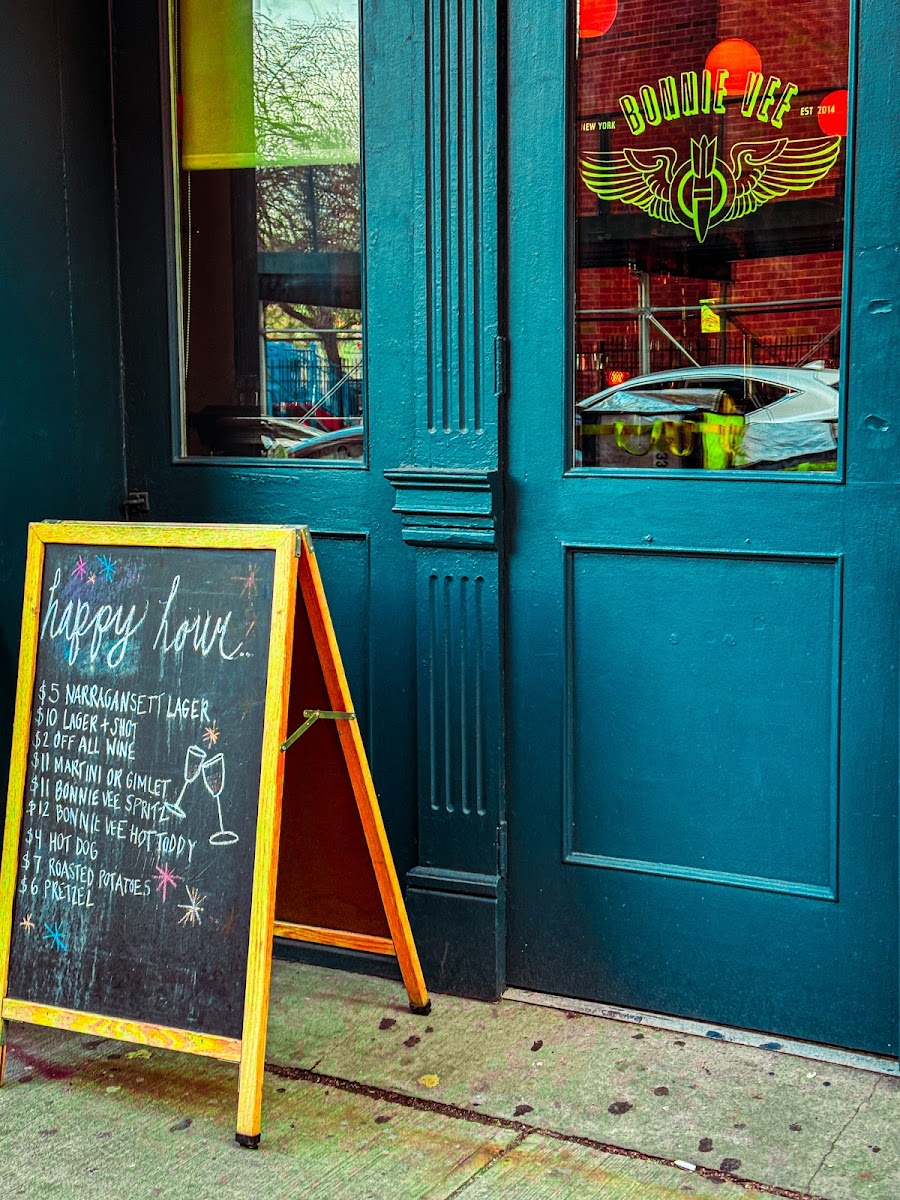 BONNIE VEE
NEW YORK
EST 2014
happy hour..
$5 NARRAGANSETT LAGER
$10 LAGER + SHOT
$2 OFF ALL WINE
$11 MARTINI OR GIMLET
$11 BONNIE VEE SPRITZ
$12 BONNIE VEE HOT TODDY
$4 HOT DOG
$7 ROASTED POTATOES
$6 PRETZEL
33